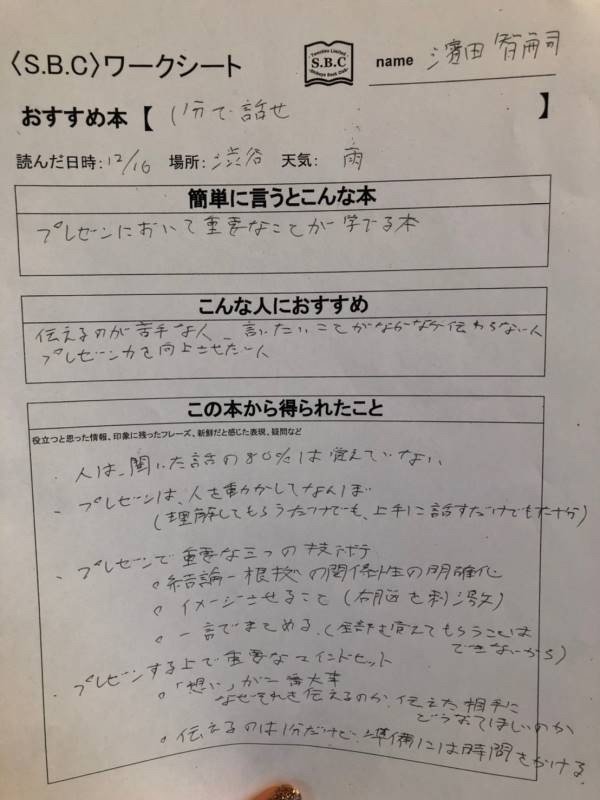 〈S.B.C〉ワークシート
Limited
S.B.C
Book Club
name 濱田 智司
おすすめ本【 1分で話せ 】
読んだ日時:12/16 場所:渋谷 天気: 雨
簡単に言うとこんな本
プレゼンにおいて重要なことが学べる本
こんな人におすすめ
伝えるのが苦手な人、言いたいことがなかなか伝わらない人
プレゼン力を向上させたい人
この本から得られたこと
役立つと思った情報、印象に残ったフレーズ、新鮮だと感じた表現、疑問など
・人は、聞いた話の80%は覚えていない
・プレゼンは、人を動かしてなんぼ
(理解してもらうだけでも、上手に話すだけでも不十分)
・プレゼンで重要な三つの技術
。結論-根拠の関係性の明確化
。イメージさせること(右脳を刺激)
。一言でまとめる。(全部を覚えてもらうことは
できないから)
・プレゼンする上で重要なマインドセット
。「想い」が一番大事
なぜそれを伝えるのか、伝えた相手に
どうなってほしいのか
。伝えるのは1分だけど、準備には時間をかける